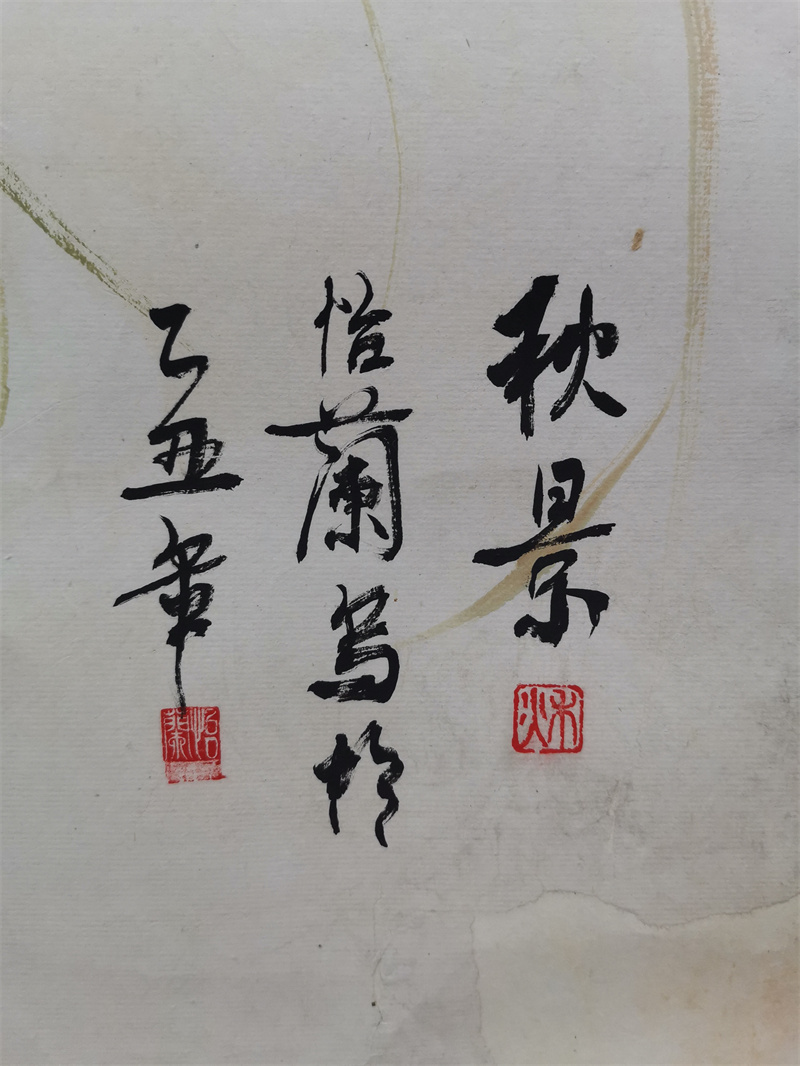 秋景
秋
怡蘭写於
乙丑年
怡蘭